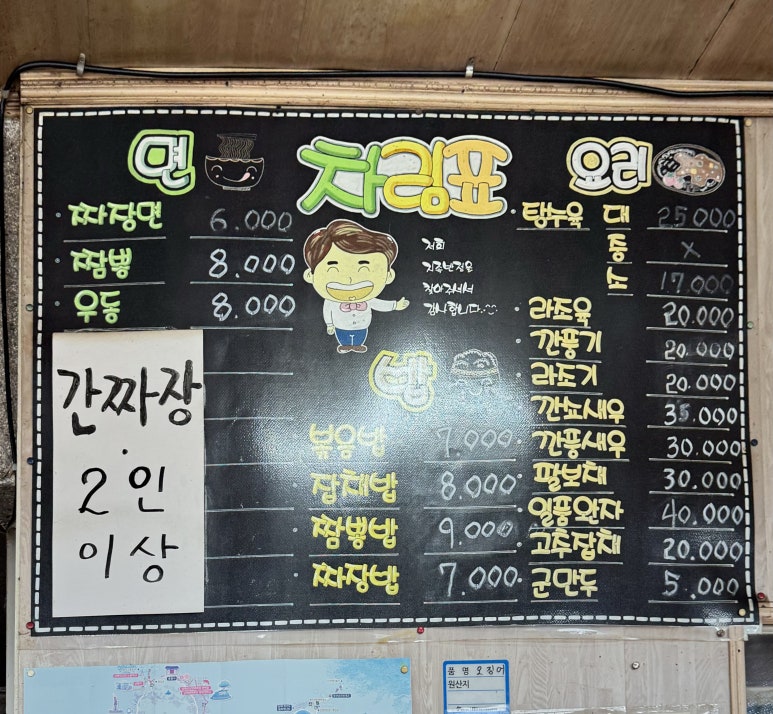 차림표
면
짜장면 6.000
짬뽕 8.000
우동 8.000
간짜장
2인
이상
저희
찾아주셔서
감사합니다
밥
볶음밥 7.000
잡채밥 8.000
짬뽕밥 9.000
짜장밥 7.000
요리
탕수육 대 25.000
중 x
소 17.000
라조육 20.000
깐풍기 20.000
라조기 20.000
깐쇼새우 35.000
깐풍새우 30.000
팔보채 30.000
열풍완자 40.000
고추잡채 20.000
군만두 5.000
품명 오징어
원산지